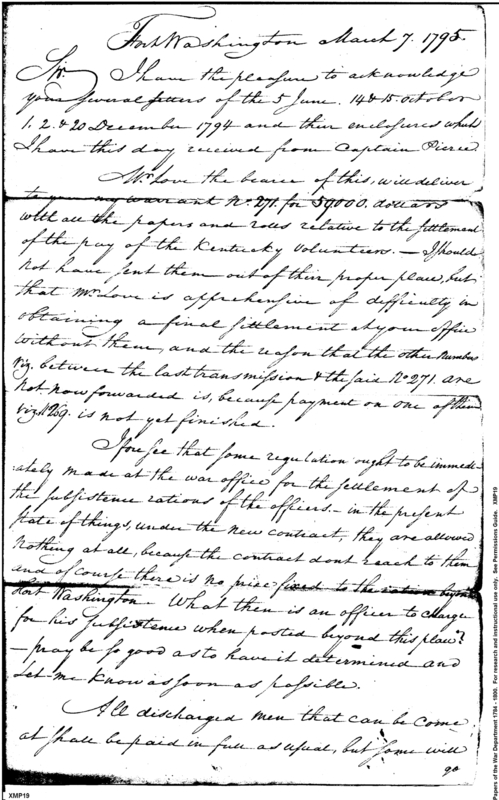 Fort Washington March 7. 1795.
Sir, I have the pleasure to acknowledge
your several letters of the 5 June. 14 & 15. October
1. 2. & 20 December 1794 and their enclosures which
I have this day received from Captain Pierce
Mr Love the bearer of this, will deliver
to you my warrant No. 271. for 59000. dollars
with all the papers and rolls relative to the settlement
of the pay of the Kentucky Volunteers. — I should
not have sent them out of their proper place, but
that Mr Love is apprehensive of difficulty in
obtaining a final settlement at your office
without them, and the reason that the other numbers
viz. between the last transmission & the said No 271. are
not now forwarded is, because payment on one of them
viz. No 269. is not yet finished.
I foresee that some regulation ought to be immedi-
ately made at the war office for the settlement of
the subsistence rations of the officers. — in the present
state of things, under the new contract, they are allowed
nothing at all, because the contract dont reach to them
and of course there is no price fixed to the ration beyond
Fort Washington. What then is an officer to charge
for his subsistence when posted beyond this place?
— pray be so good as to have it determined and
let me know as soon as possible.
All discharged men that can be come
at shall be paid in full as usual, but some will
go
XMP19
Papers of the War Department 1784 - 1800. For research and instructional use only. See Permissions Guide. XMP19